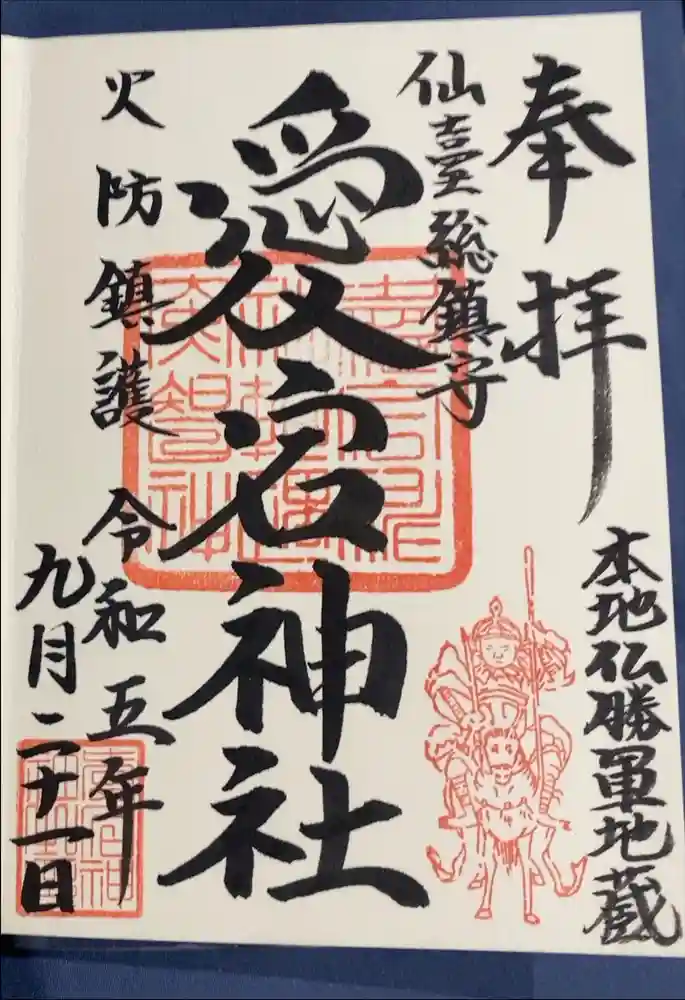 奉拝
本地仏勝軍地蔵
仙臺総鎮守
愛宕神社
火防鎮護
令和五年
九月二十一日